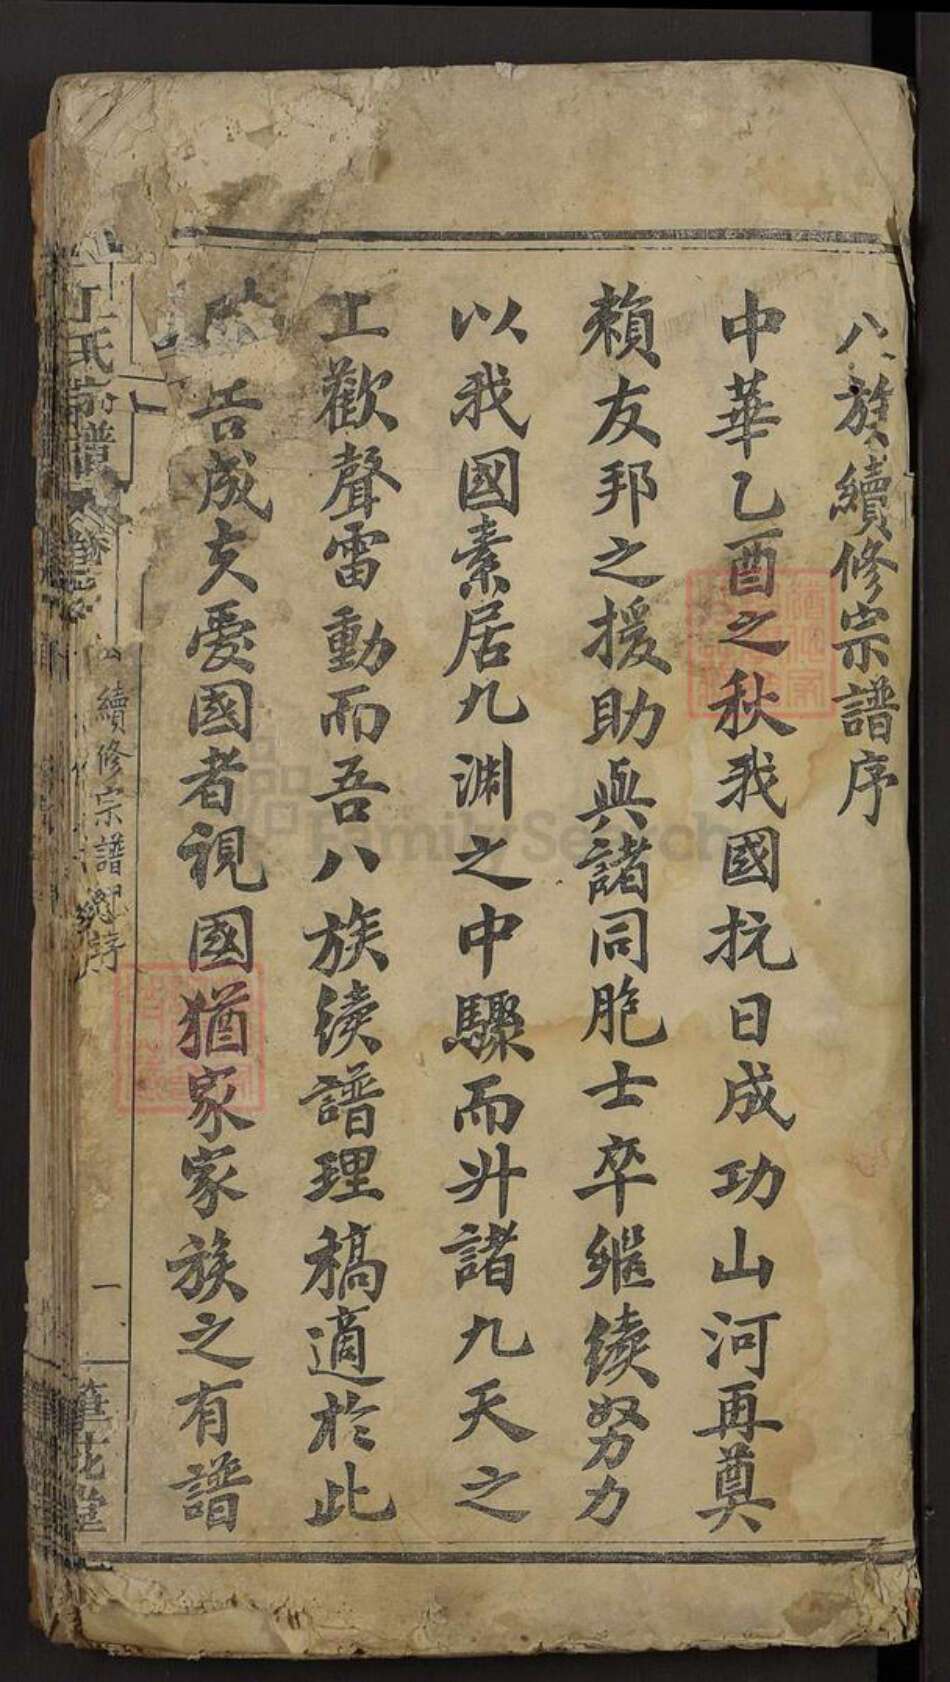 八族續修宗譜序
中華乙酉之秋我國抗日成功山河再奠
賴友邦之援助與諸同胞士卒继续努力
以我國素居九渊之中驟而升諸九天之
上歡聲雷動而吾八族续譜理稿適於此
告成夫愛國者視國猶家家族之有譜
江氏宗譜
續修宗譜序
一
筆花堂
FamilySearch